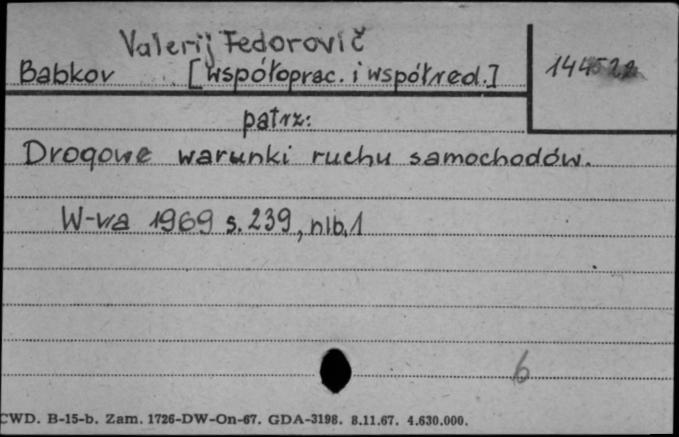 Valerij Fedorovič
Babkov [współoprac. i współred.]
patrz:
Drogowe warunki ruchu samochodów.
W-wa 1969 s. 239, nlb. 1
6
CWD. B-15-b. Zam. 1726-DW-On-67. GDA-3198. 8.11.67. 4.630.000.